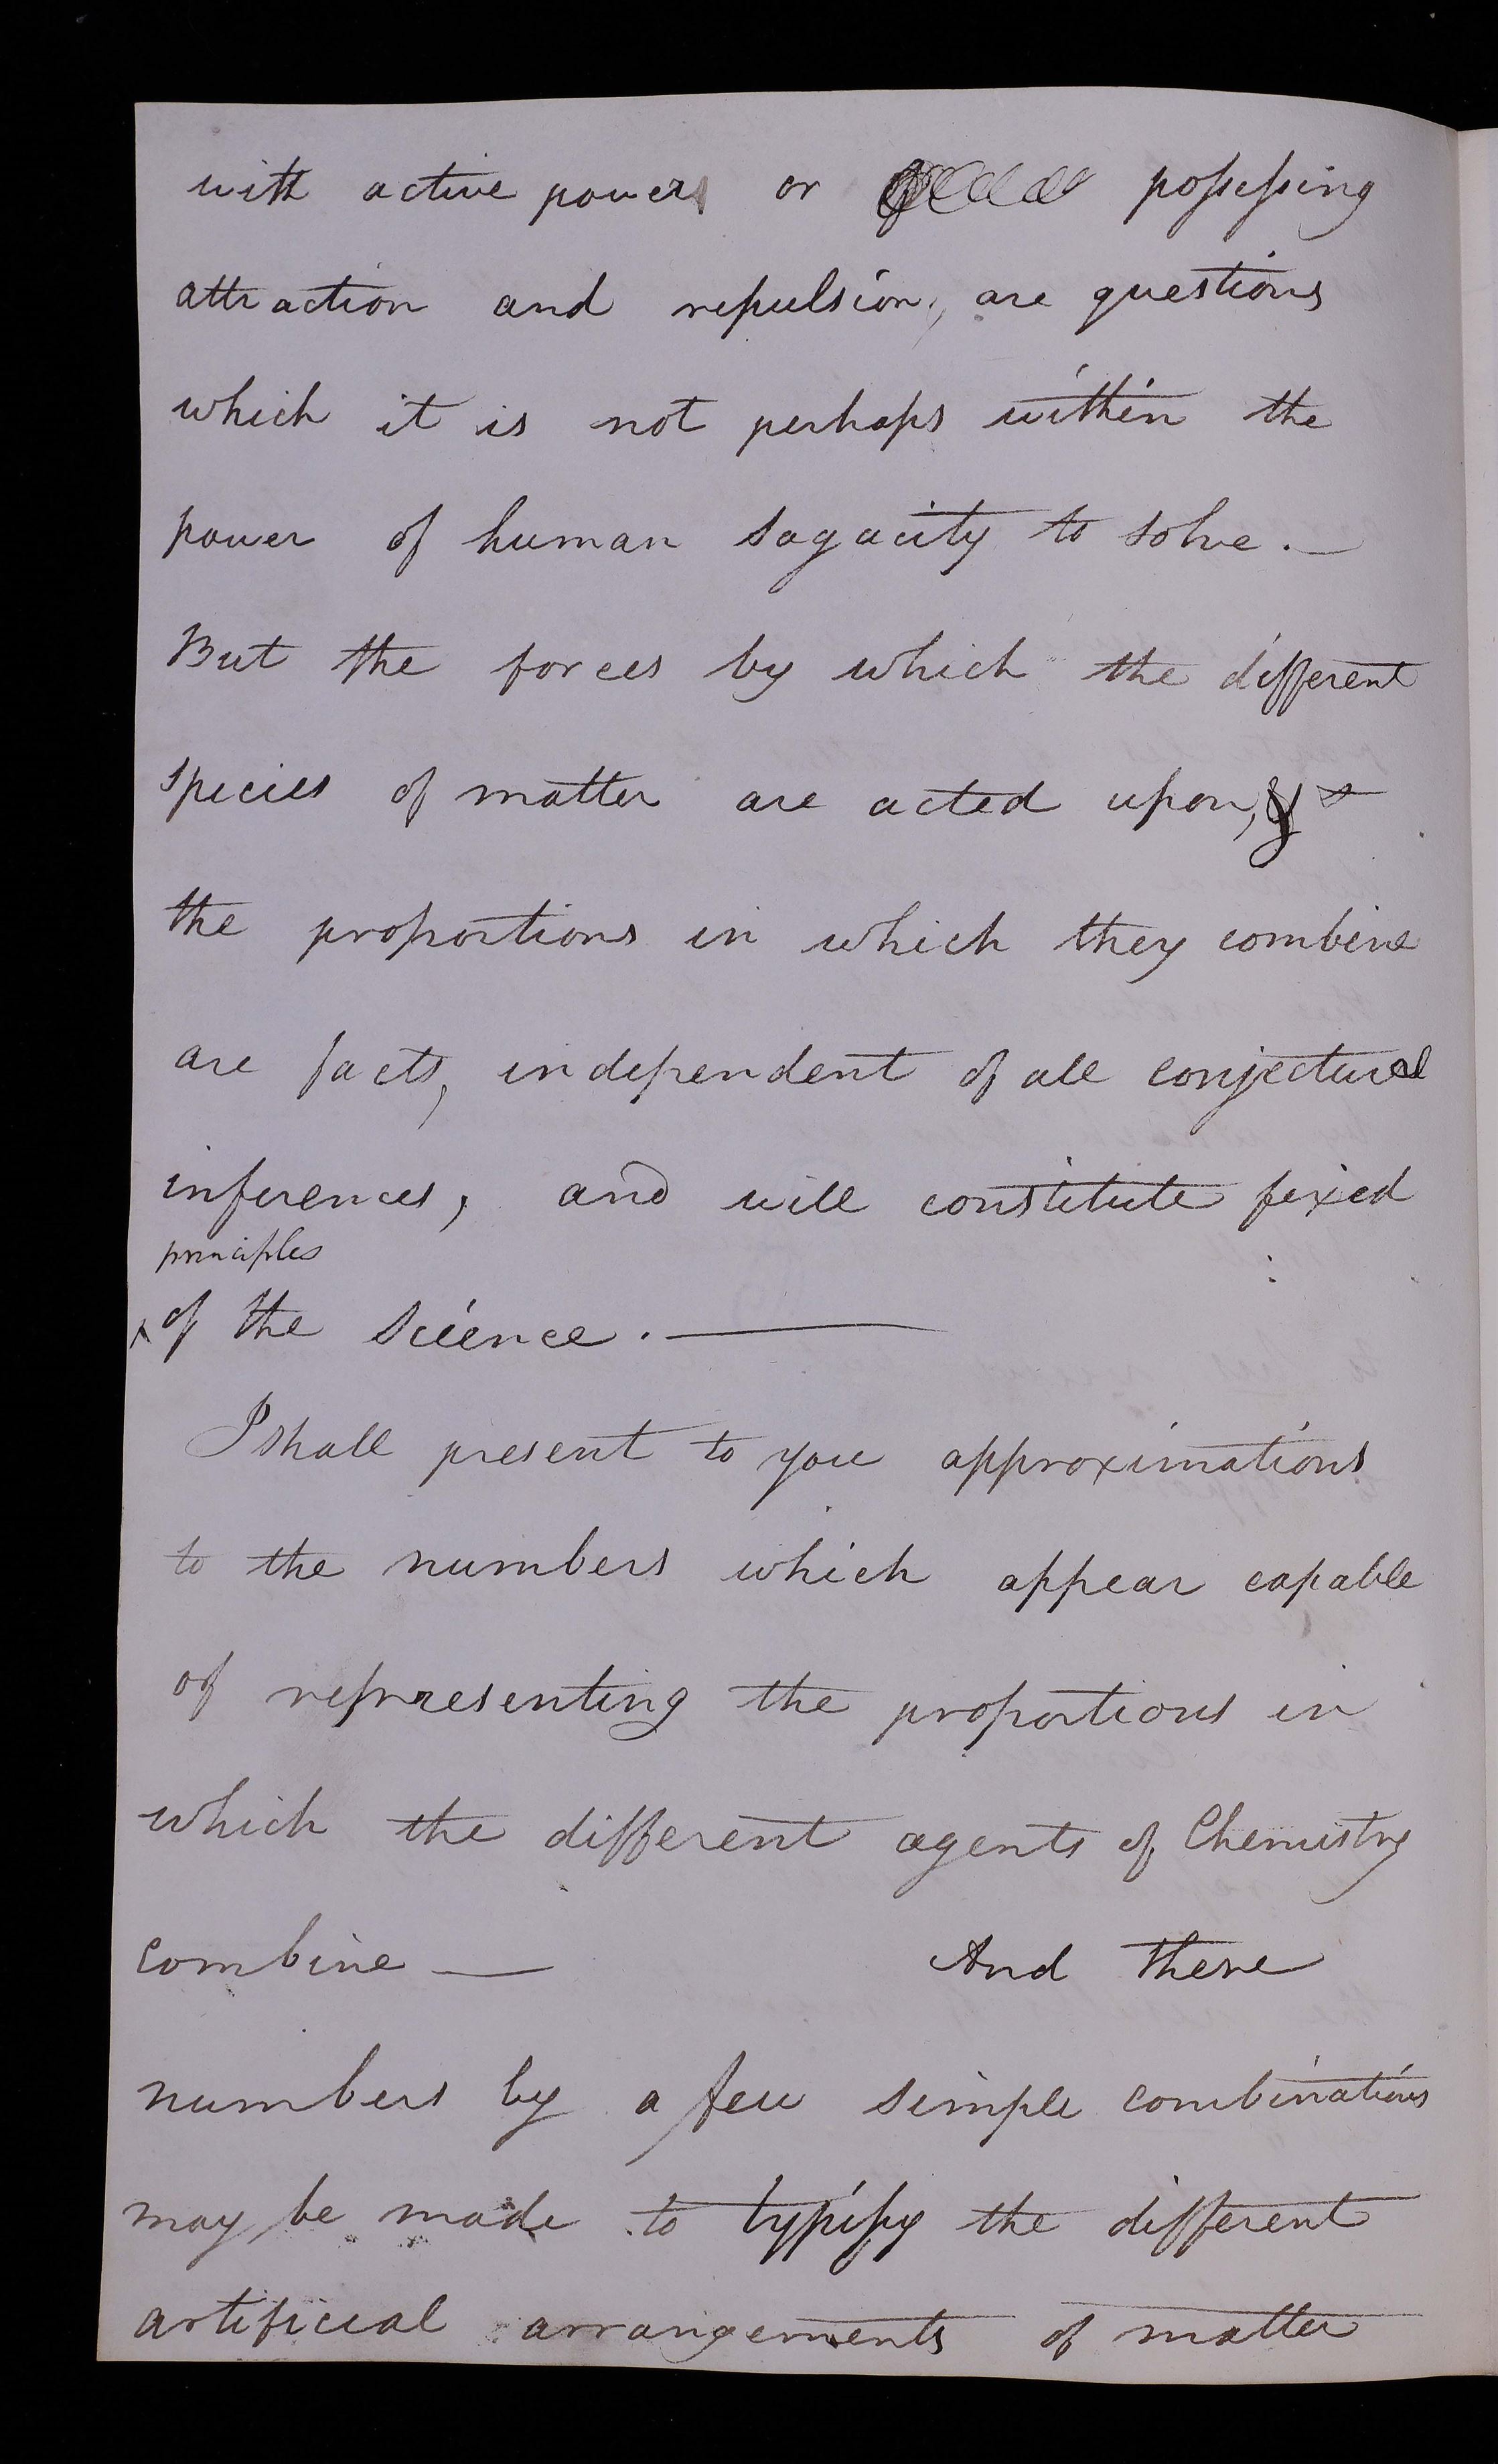 with active power or possessing
attraction and repulsion, are questions
which it is not perhaps within the
power of human sagacity to solve. —
But the forces by which the different
species of matter are acted upon, &
the proportions in which they combine
are facts, independent of all conjectural
inferences, and will constitute fixed
principles
^ of the science. —
I shall present to you approximations
to the numbers which appear capable
of representing the proportions in
which the different agents of Chemistry
combine — And these
numbers by a few simple combinations
may be made to typify the different
artificial arrangements of matter